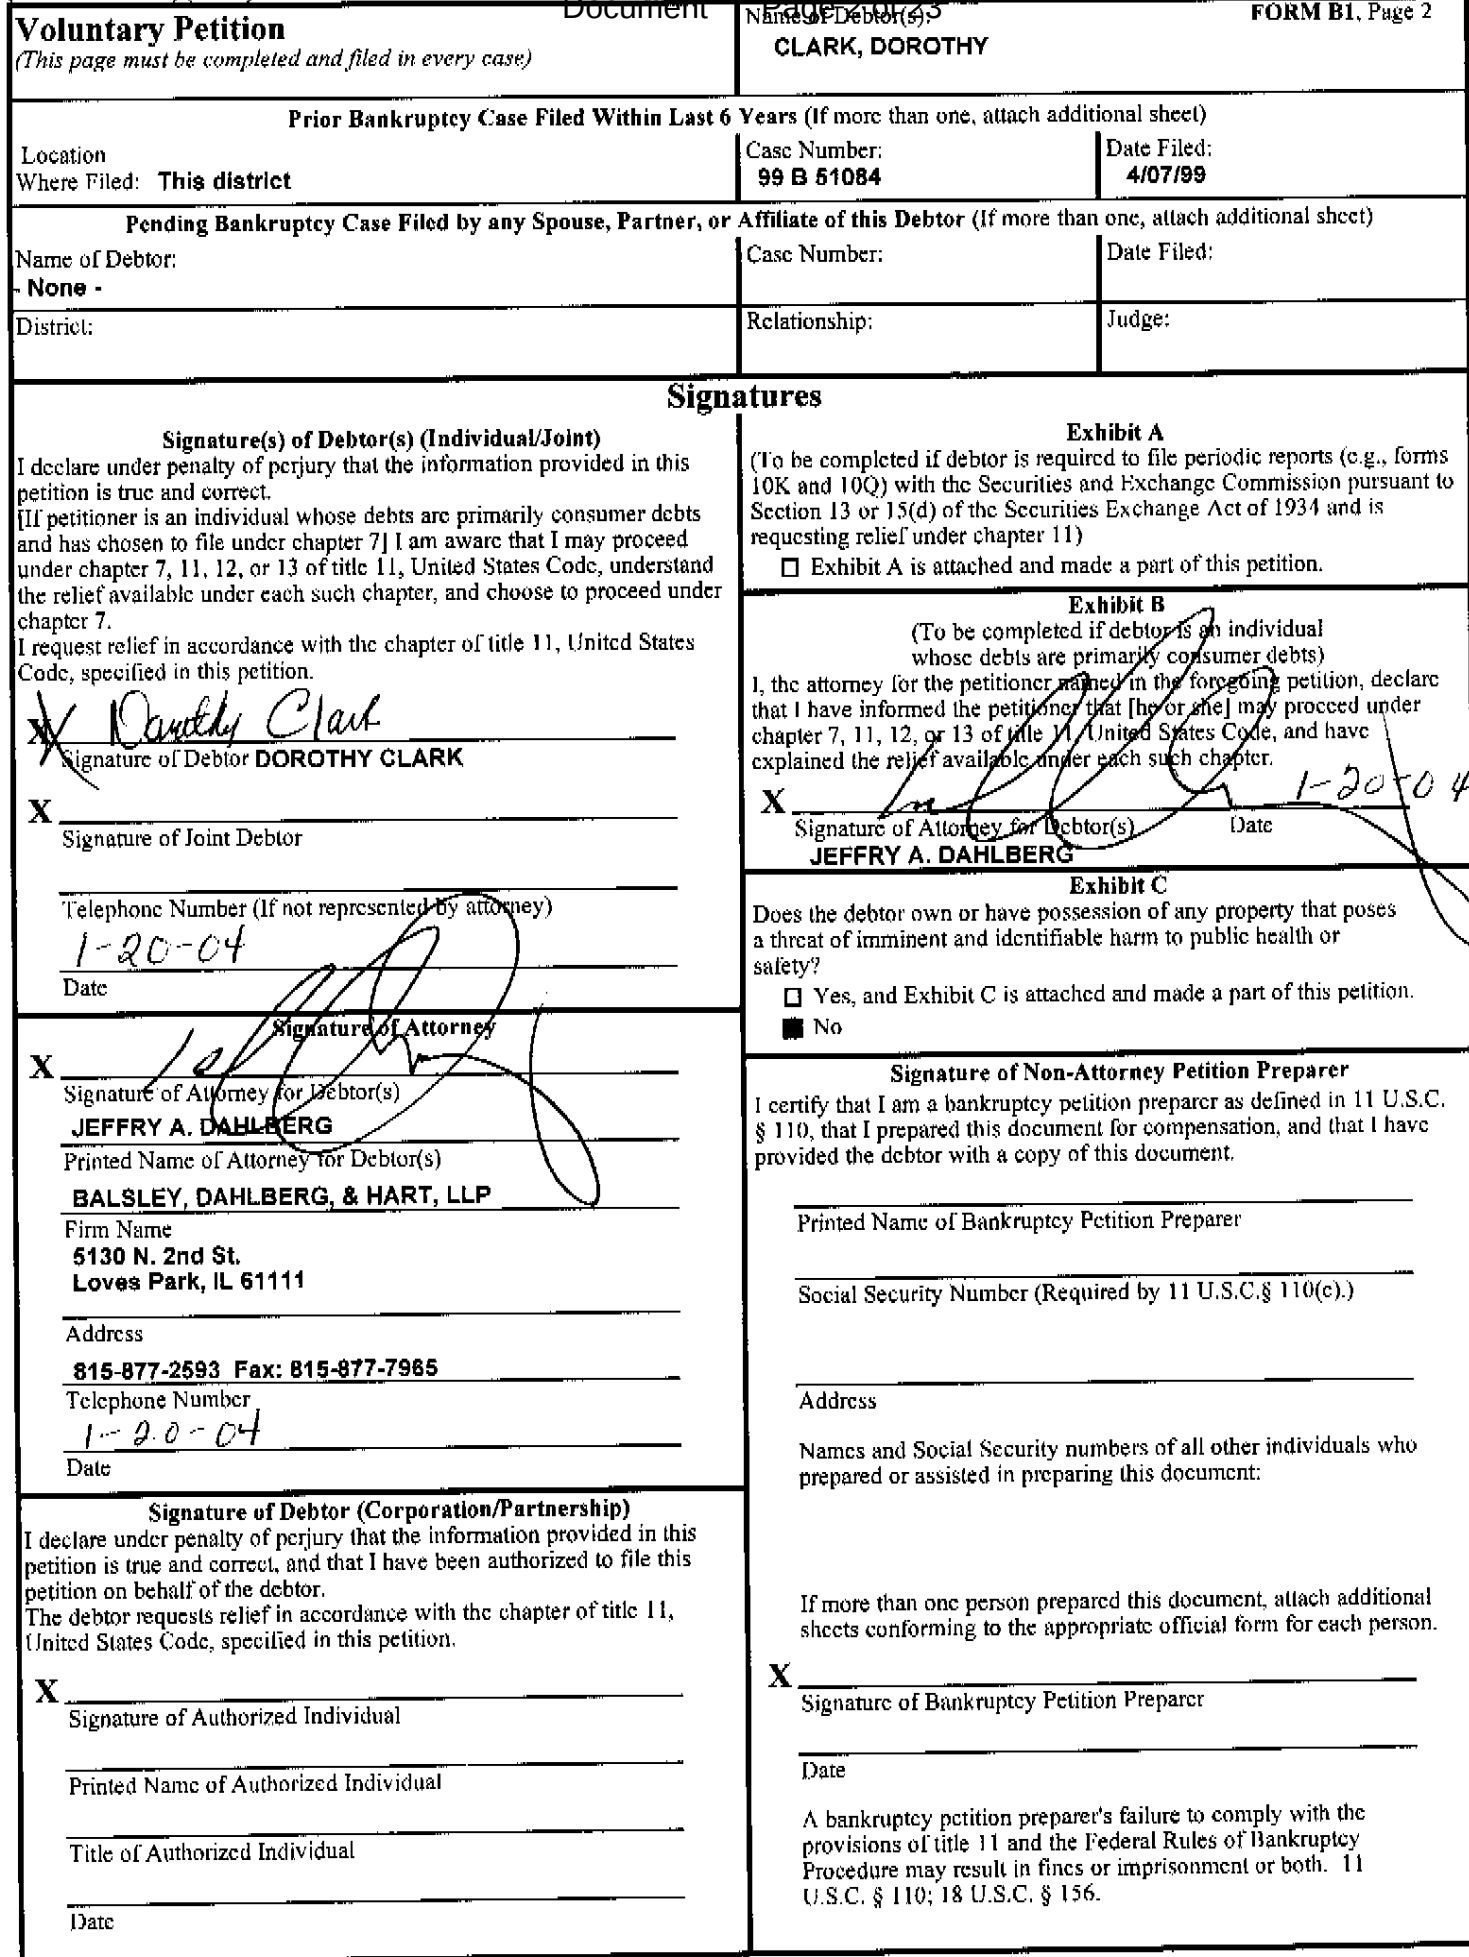 Document Page 2 of 23
Voluntary Petition
(This page must be completed and filed in every case)
Name of Debtor(s):
CLARK, DOROTHY
FORM B1, Page 2
Prior Bankruptcy Case Filed Within Last 6 Years (If more than one, attach additional sheet)
Location
Where Filed: This district
Case Number:
99 B 51084
Date Filed:
4/07/99
Pending Bankruptcy Case Filed by any Spouse, Partner, or Affiliate of this Debtor (If more than one, attach additional sheet)
Name of Debtor:
- None -
Case Number:
Date Filed:
District:
Relationship:
Judge:
Signatures
Signature(s) of Debtor(s) (Individual/Joint)
I declare under penalty of perjury that the information provided in this
petition is true and correct.
[If petitioner is an individual whose debts are primarily consumer debts
and has chosen to file under chapter 7] I am aware that I may proceed
under chapter 7, 11, 12, or 13 of title 11, United States Code, understand
the relief available under each such chapter, and choose to proceed under
chapter 7.
I request relief in accordance with the chapter of title 11, United States
Code, specified in this petition.
X Dorothy Clark
Signature of Debtor DOROTHY CLARK
X
Signature of Joint Debtor
Telephone Number (If not represented by attorney)
1-20-04
Date
Signature of Attorney
X
Signature of Attorney for Debtor(s)
JEFFRY A. DAHLBERG
Printed Name of Attorney for Debtor(s)
BALSLEY, DAHLBERG, & HART, LLP
Firm Name
5130 N. 2nd St.
Loves Park, IL 61111
Address
815-877-2593 Fax: 815-877-7965
Telephone Number
1-20-04
Date
Signature of Debtor (Corporation/Partnership)
I declare under penalty of perjury that the information provided in this
petition is true and correct, and that I have been authorized to file this
petition on behalf of the debtor.
The debtor requests relief in accordance with the chapter of title 11,
United States Code, specified in this petition.
X
Signature of Authorized Individual
Printed Name of Authorized Individual
Title of Authorized Individual
Date
Exhibit A
(To be completed if debtor is required to file periodic reports (e.g., forms
10K and 10Q) with the Securities and Exchange Commission pursuant to
Section 13 or 15(d) of the Securities Exchange Act of 1934 and is
requesting relief under chapter 11)
☐ Exhibit A is attached and made a part of this petition.
Exhibit B
(To be completed if debtor is an individual
whose debts are primarily consumer debts)
I, the attorney for the petitioner named in the foregoing petition, declare
that I have informed the petitioner that [he or she] may proceed under
chapter 7, 11, 12, or 13 of title 11, United States Code, and have
explained the relief available under each such chapter.
X 1-20-04
Signature of Attorney for Debtor(s) Date
JEFFRY A. DAHLBERG
Exhibit C
Does the debtor own or have possession of any property that poses
a threat of imminent and identifiable harm to public health or
safety?
☐ Yes, and Exhibit C is attached and made a part of this petition.
■ No
Signature of Non-Attorney Petition Preparer
I certify that I am a bankruptcy petition preparer as defined in 11 U.S.C.
§ 110, that I prepared this document for compensation, and that I have
provided the debtor with a copy of this document.
Printed Name of Bankruptcy Petition Preparer
Social Security Number (Required by 11 U.S.C.§ 110(c).)
Address
Names and Social Security numbers of all other individuals who
prepared or assisted in preparing this document:
If more than one person prepared this document, attach additional
sheets conforming to the appropriate official form for each person.
X
Signature of Bankruptcy Petition Preparer
Date
A bankruptcy petition preparer's failure to comply with the
provisions of title 11 and the Federal Rules of Bankruptcy
Procedure may result in fines or imprisonment or both. 11
U.S.C. § 110; 18 U.S.C. § 156.